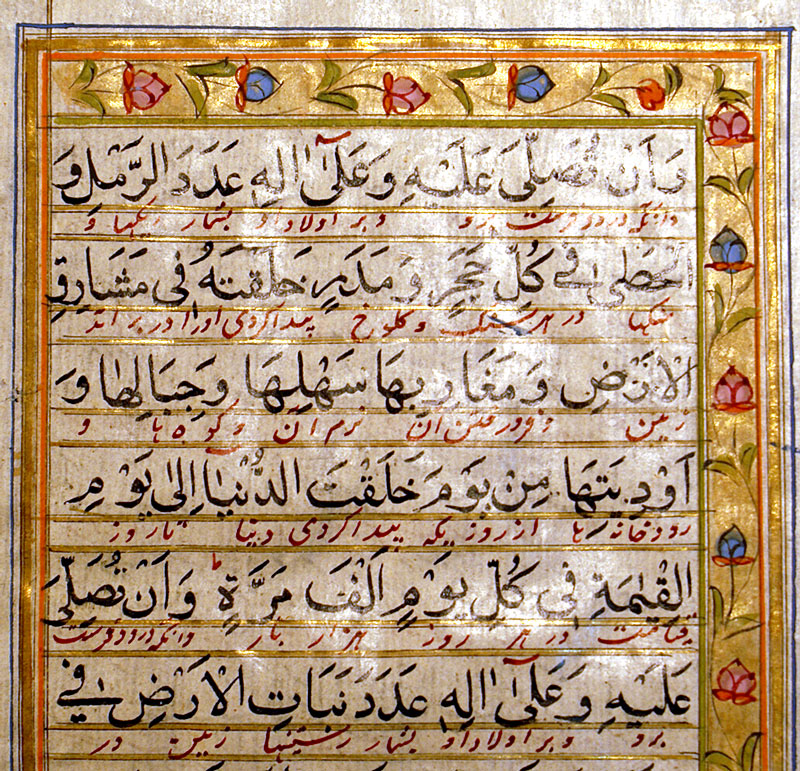 وَاَنْ تُصَلِّيَ عَلَيْهِ وَعَلىٰٓ اٰلِهٖ عَدَدَ الرَّمْلِ وَ
وآنكه درود فرست برو و بر اولاد او بشمار ريكها و
الْحَصٰى فِي كُلِّ حَجَرٍ وَمَدَرٍ خَلَقْتَهُ فِي مَشَارِقِ
در هر سنك و كلوخ پيدا كردى او را در
الْاَرْضِ وَمَغَارِبِهَا سَهْلِهَا وَجِبَالِهَا وَ
زمين و فرو رفتن آن نرم آن و كوه ها و
اَوْدِيَتِهَا مِنْ يَوْمَ خَلَقْتَ الدُّنْيَا اِلىٰ يَوْمِ
رودخانه ها از روزيكه پيدا كردى دنيا تا روز
الْقِيٰمَةِ فِي كُلِّ يَوْمٍ اَلْفَ مَرَّةٍ وَاَنْ تُصَلِّيَ
قيامت در هر روز هزار بار وآنكه درود فرست
عَلَيْهِ وَعَلىٰٓ اٰلِهٖ عَدَدَ نَبَاتِ الْاَرْضِ فِي
برو و بر اولاد او بشمار رستنيها زمين در